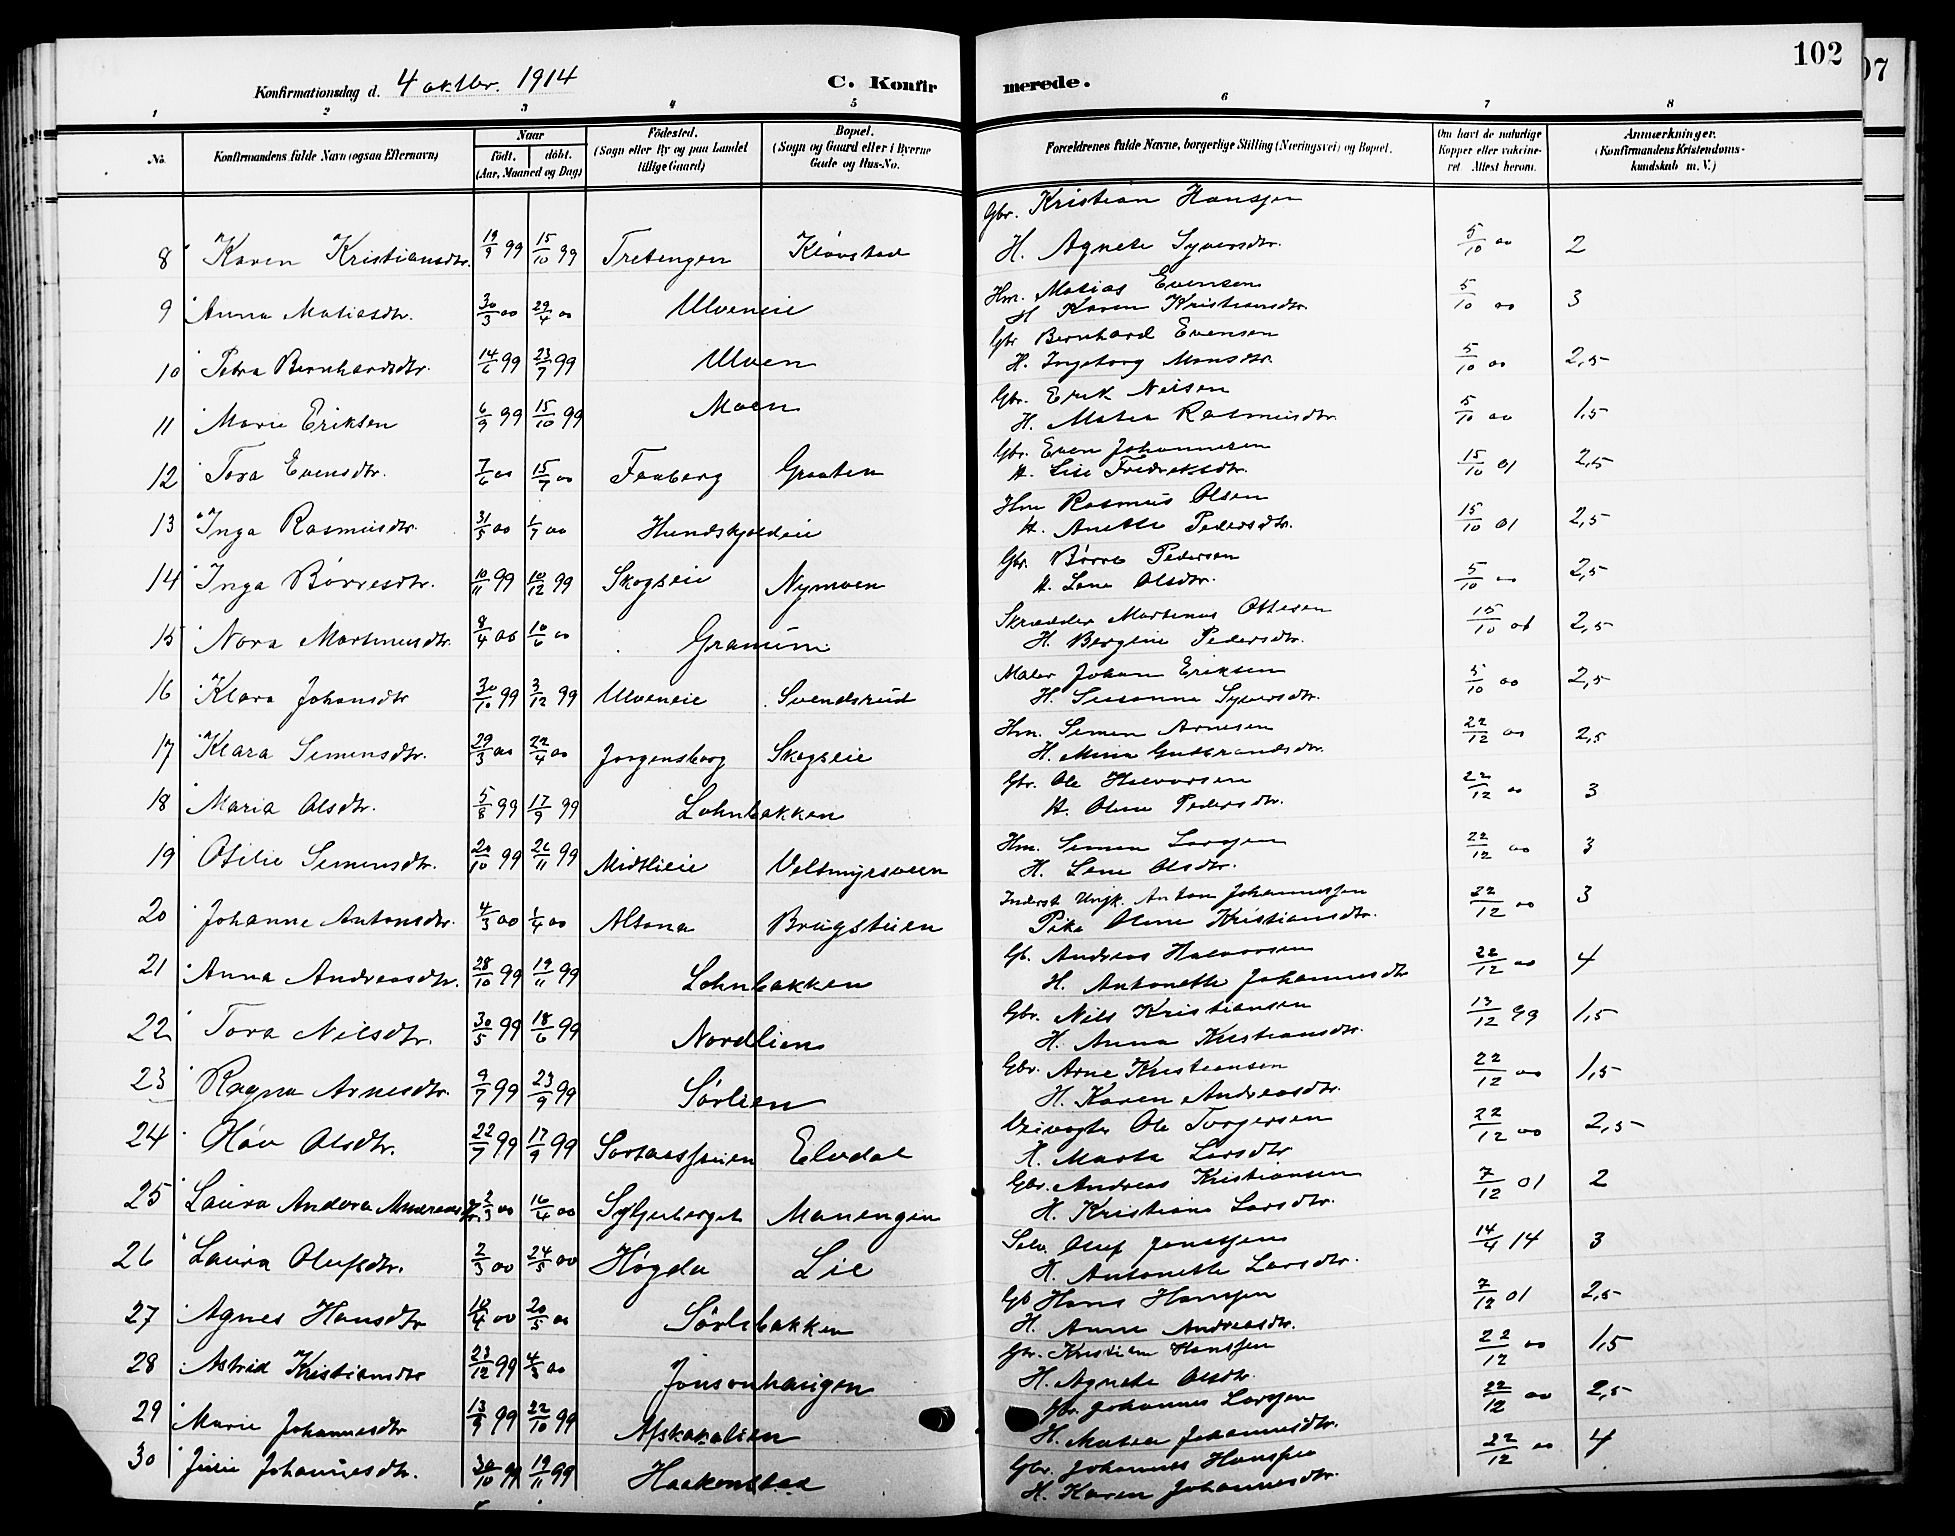 102
07
Konfirmationsdag d. 4 oktbr. 1914
C. Konfirmerede.
1 2 3 4 5 6 7 8
No. Konfirmandens fulde Navn (ogsaa Efternavn) Naar født. døbt. (Aar, Maaned og Dag) Fødested. (Sogn eller By og paa Landet tillige Gaard) Bopæl. (Sogn og Gaard eller i Byerne Gade og Hus-No. Forældrenes fulde Navne, borgerlige Stilling (Næringsvei) og Bopæl. Om havt de naturlige Kopper eller vakcineret Attest herom. Anmærkninger. (Konfirmandens Kristendomskundskab m. V.)
Gbr. Kristian Hansen
8 Karen Kristiansdtr. 19/9 99 15/10 99 Tretengen Kløvstad H. Agnete Syversdtr. 5/10 00 2
Hm. Matias Evensen
9 Anna Matiasdtr. 30/3 00 29/4 00 Ulveneie H Karen Kristiansdtr. 5/10 00 3
Gbr Bernhard Evensen
10 Petra Bernhardsdtr. 14/6 99 23/7 99 Ulven H. Ingeborg Monsdtr. 5/10 00 2,5
Gbr. Erik Nilsen
11 Marie Eriksen 6/9 99 15/10 99 Moen H. Matea Rasmusdtr. 5/10 00 1,5
Gbr. Even Johannesen
12 Tora Evensdtr. 7/6 00 15/7 00 Faaberg Graaten H. Lise Fredriksdtr. 15/10 01 2,5
Hm Rasmus Olsen
13 Inga Rasmusdtr. 31/5 00 1/7 00 Hundskjoldeie H. Anette Pedersdtr. 15/10 01 2,5
Gbr. Børre Pedersen
14 Inga Børresdtr. 10/11 99 10/12 99 Skogseie Nymoen H. Lene Olsdtr. 5/10 00 2,5
Skrædder Martinus Ottesen
15 Nora Martinusdtr. 8/4 00 10/6 00 Granum H. Bergine Pedersdtr. 15/10 01 2,5
Maler Johan Eriksen
16 Klara Johansdtr 30/10 99 3/12 99 Ulveneie Svendsrud H. Susanna Syversdtr. 5/10 00 2,5
Hm. Simen Arnesen
17 Klara Simensdtr. 29/3 00 22/4 00 Jørgensborg Skogseie H. Mina Gudbrandsdtr. 22/12 00 2,5
Gbr. Ole Halvorsen
18 Maria Olsdtr. 5/8 99 17/9 99 Lohnbakken H. Oline Pedersdtr. 22/12 00 3
Hm. Simen Larsen
19 Otilie Simensdtr. 20/10 99 26/11 99 Midtlieie Veltmyrsveen H. Lene Olsdtr. 22/12 00 3
Inderst Ungk. Anton Johannessen
20 Johanne Antonsdtr. 4/3 00 1/4 00 Altona Brugstuen Pike Oline Kristiansdtr. 22/12 00 3
Gb. Andreas Halvorsen
21 Anna Andreasdtr. 28/10 99 19/11 99 Lohnbakken H. Antonette Johannesdtr 22/12 00 4
Gbr. Nils Kristiansen
22 Tora Nilsdtr. 30/5 99 18/6 99 Nordlien H. Anna Kristiansdtr. 13/12 99 1,5
Gbr. Arne Kristiansen
23 Ragna Arnesdtr. 9/7 99 23/9 99 Sørlien H. Karen Andreasdtr. 22/12 00 1,5
Ole Torgersen
24 Olsdtr. 22/7 99 17/9 99 Elvdal H. Marta Larsdtr 22/12 00 2,5
Gbr. Andreas Kristiansen
25 Laura Andora Andreasdtr 2/3 00 16/4 00 Syljeberget Manengen H. Kristiane Larsdtr. 7/12 01 2
Selv. Oluf Jonssen
26 Laura Olufsdtr. 2/3 00 24/5 00 Høgda Lie H. Antonette Larsdtr. 14/4 14 3
Gb Hans Hansen
27 Agnes Hansdtr 10/4 00 20/5 00 Sørlsbakken H. Anne Andreasdtr. 7/12 01 2,5
Gbr. Kristian Hanssen
28 Astrid Kristiansdtr 23/12 99 4/3 00 Jonsonhaugen H. Agnete Olsdtr. 22/12 00 1,5
Gbr. Johannes Larsen
29 Marie Johannesdtr 13/9 99 22/10 99 Afskakalien H. Matea Johannesdtr. 22/12 00 2,5
Gbr. Johannes Hanssen
30 Julie Johannesdtr. 30/10 99 19/11 99 Haakenstad H. Karen Johannesdtr. 22/12 00 4